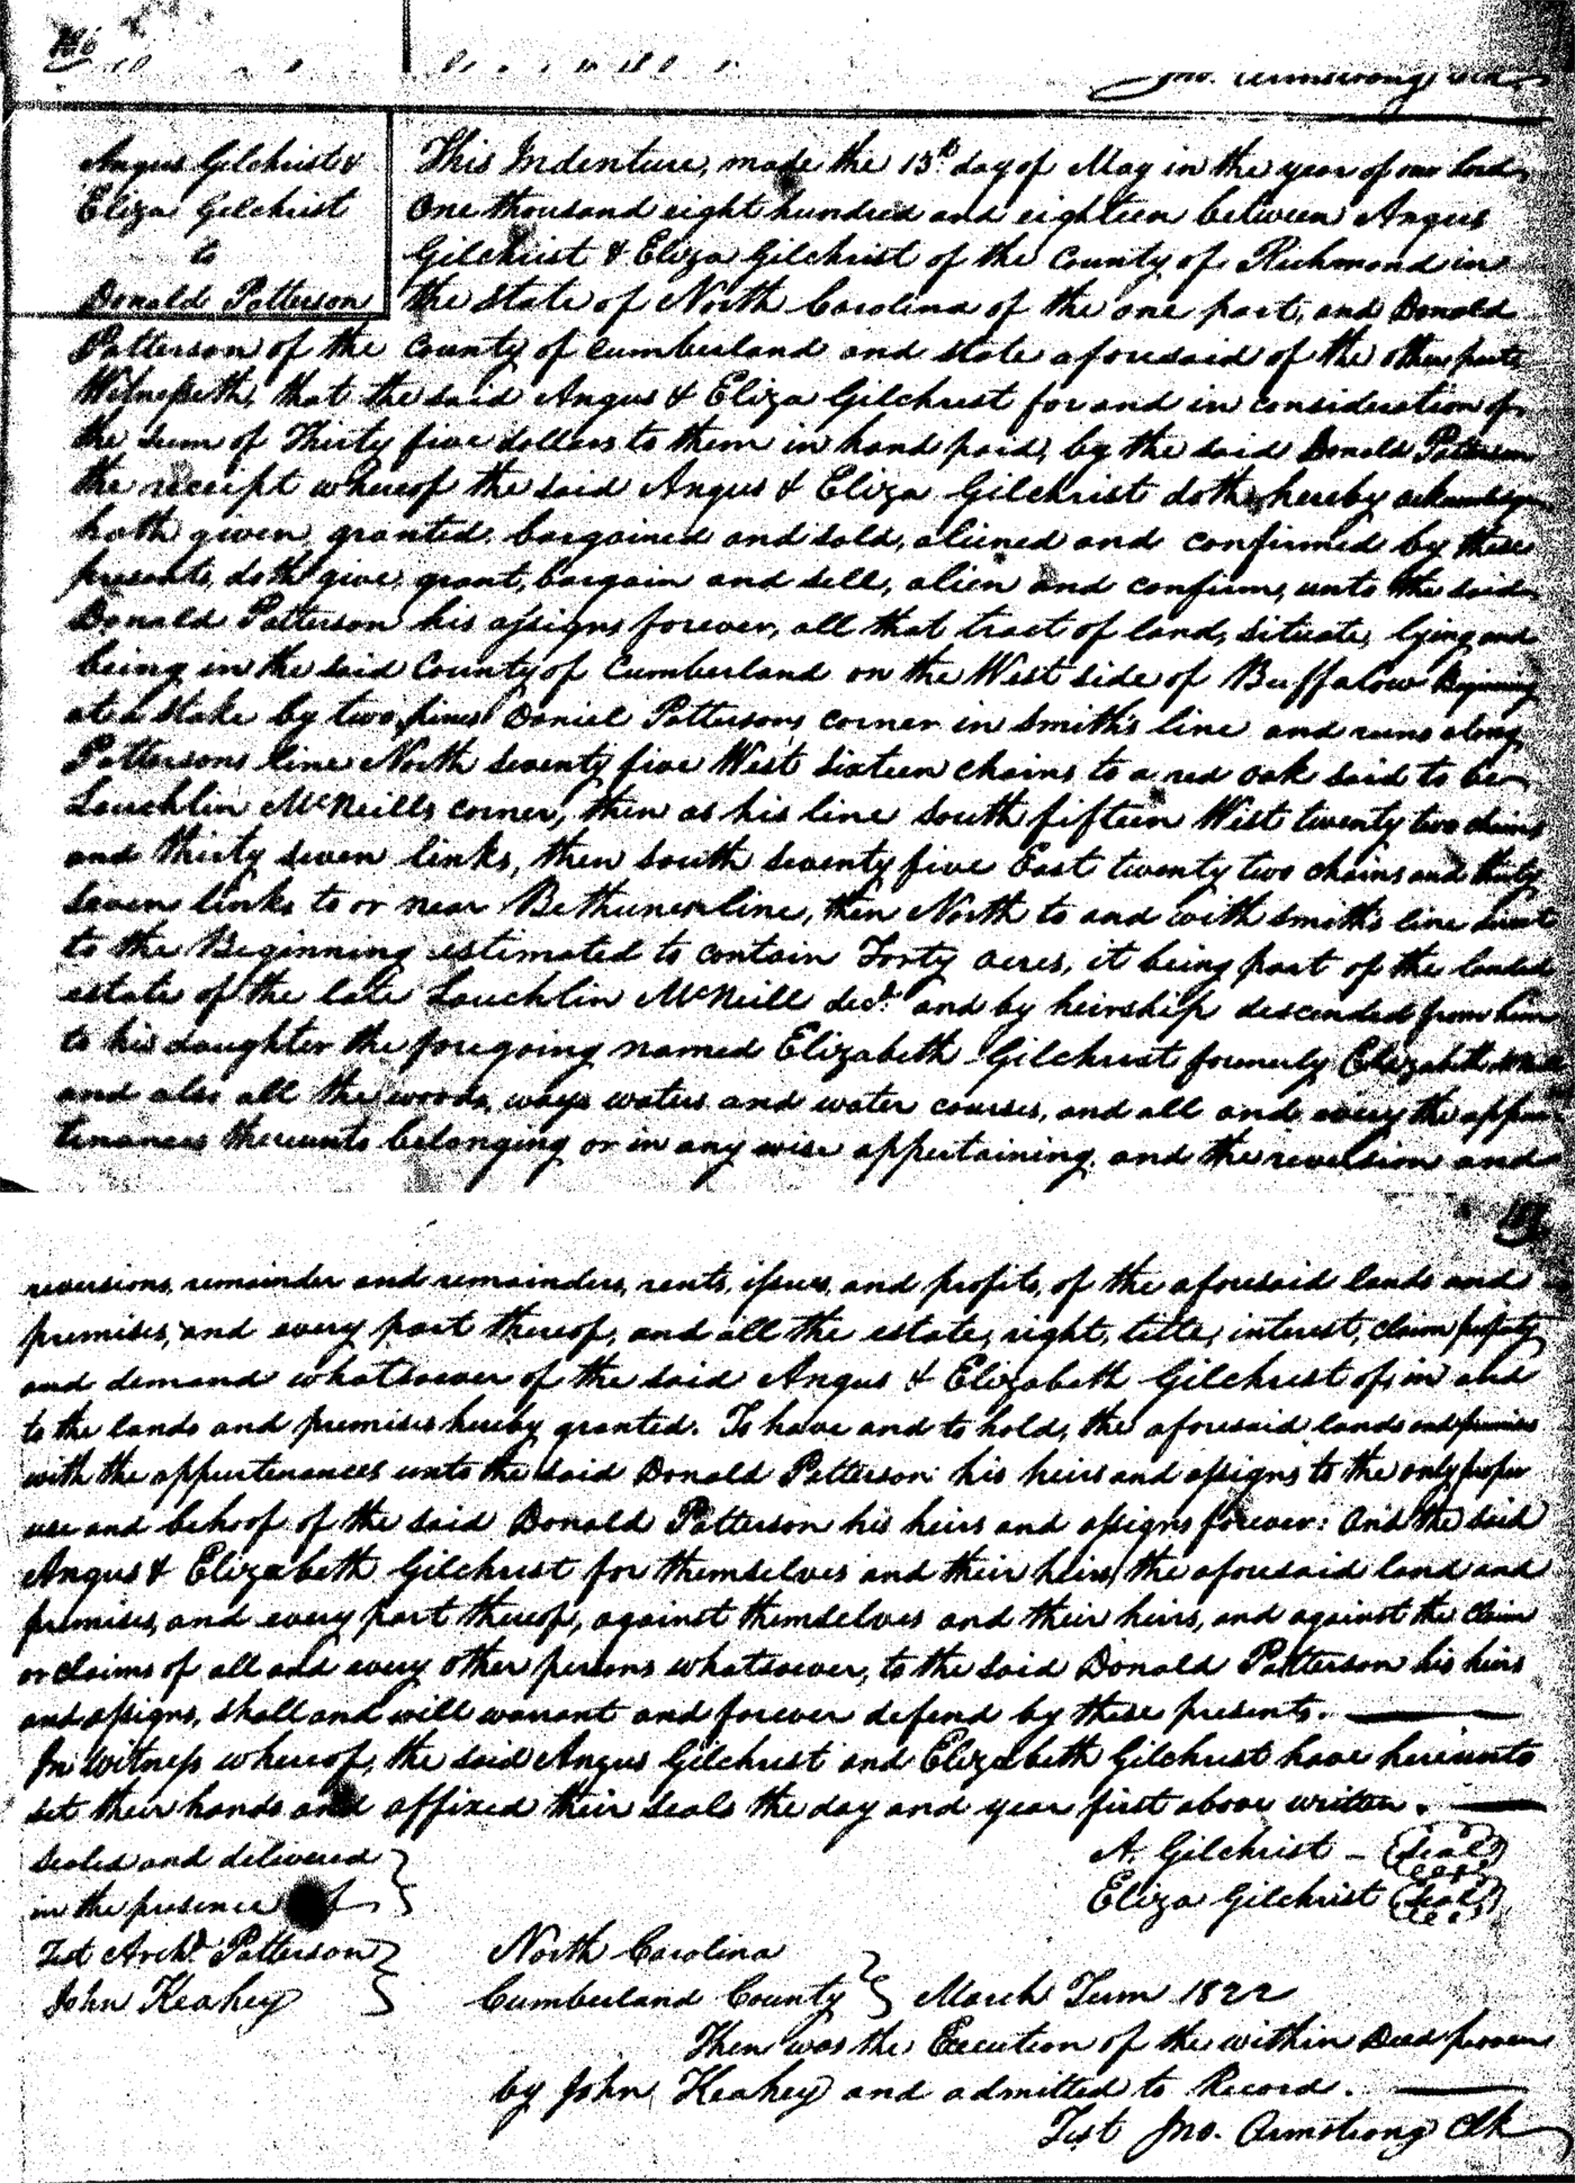 Jno. Armstrong Clk
Angus Gilchrist &
Eliza Gilchrist
to
Donald Patterson
This Indenture, made the 15th day of May in the year of our Lord
One thousand eight hundred and eighteen between Angus
Gilchrist & Eliza Gilchrist of the County of Richmond in
the State of North Carolina of the one part, and Donald
Patterson of the County of Cumberland and state aforesaid of the other part
Witnesseth, that the said Angus & Eliza Gilchrist for and in consideration of
the sum of Thirty five dollars to them in hand paid, by the said Donald Patterson
the receipt whereof the said Angus & Eliza Gilchrist doth hereby acknowledge
hath given, granted, bargained and sold, aliened and confirmed by these
presents, doth give, grant, bargain and sell, alien and confirm, unto the said
Donald Patterson his assigns forever, all that tract of land, situate, lying and
being in the said County of Cumberland on the West side of Buffalow Beginning
at a stake by two pines Daniel Pattersons corner in Smith's line and runs along
Pattersons line North seventy five West sixteen chains to a red oak said to be
Lauchlin McNeills corner, then as his line South fifteen West twenty two chains
and thirty seven links, then South seventy five East twenty two chains and thirty
seven links to or near Bethunes line, then North to and with Smith's line
to the Beginning estimated to contain Forty acres, it being part of the landed
estate of the late Lauchlin McNeill decd. and by heirship descended from him
to his daughter the foregoing named Elizabeth Gilchrist formerly Elizabeth McNeill
and also all the woods, ways waters and water courses, and all and every the appur
tenances thereunto belonging or in any wise appertaining, and the reversion and
reversions, remainder and remainders, rents, issues, and profits, of the aforesaid lands and
premises, and every part thereof, and all the estate, right, title, interest, claim property
and demand whatsoever of the said Angus & Elizabeth Gilchrist of, in and
to the lands and premises hereby granted. To have and to hold, the aforesaid lands and premises
with the appurtenances unto the said Donald Patterson his heirs and assigns to the only proper
use and behoof of the said Donald Patterson his heirs and assigns forever: And the said
Angus & Elizabeth Gilchrist for themselves and their heirs, the aforesaid land and
premises, and every part thereof, against themselves and their heirs, and against the claim
or claims of all and every other persons whatsoever, to the said Donald Patterson his heirs
and assigns, shall and will warrant and forever defend by these presents.
In Witness whereof, the said Angus Gilchrist and Elizabeth Gilchrist have hereunto
set their hands and affixed their seals the day and year first above written.
Sealed and delivered
in the presence of
A. Gilchrist - (Seal)
Eliza Gilchrist (Seal)
Test Archd. Patterson
John Keahey
North Carolina
Cumberland County } March Term 1822
Then was the Execution of the within Deed proven
by John Keahey and admitted to Record.
Test Jno. Armstrong Clk